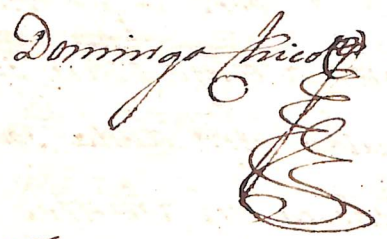 Domingo Chico